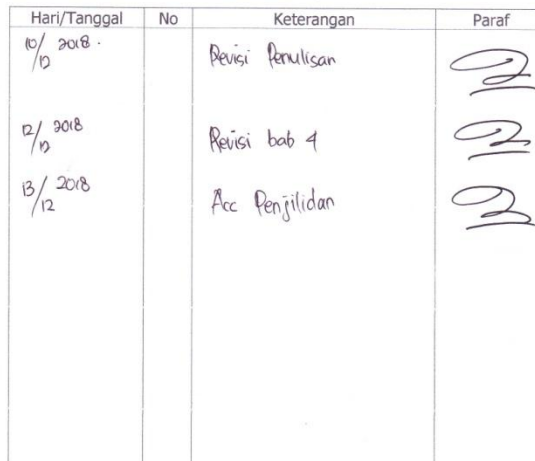 Hari/Tanggal No Keterangan Paraf
10/12 2018. Revisi Penulisan
12/12 2018 Revisi bab 4
13/12 2018 Acc Penjilidan